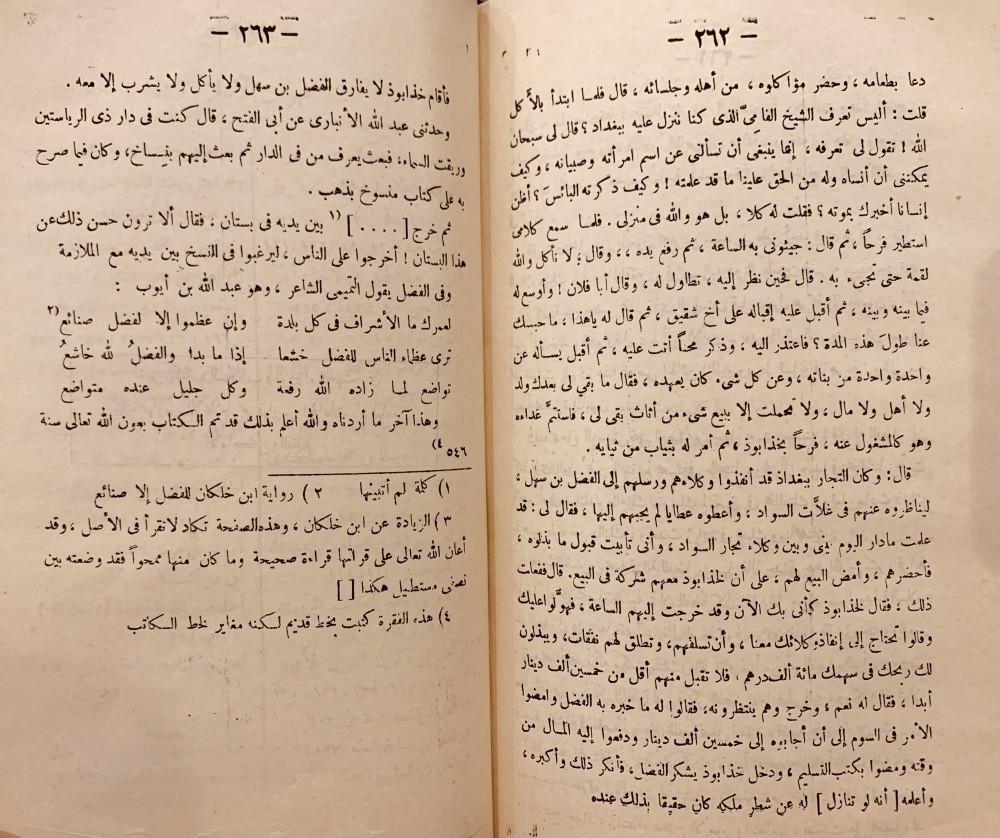 — ٢٦٢ —
دعا بطعامه ، وحضر مؤاكلوه ، من أهله وجلسائه ، قال فلمـا ابتدأ بالأكل
قلت : أليس تعرف الشيخ الفامىّ الذى كنا ننزل عليه ببغداد ؟ قال لى سبحان
الله ! تقول لى تعرفه ، إنما ينبغى أن تسألنى عن اسم امرأته وصبيانه ، وكيف
يمكننى أن أنساه وله من الحق علينا ما قد علمته ! وكيف ذكرته البائسَ ؟ أظن
إنسانا أخبرك بموته ؟ فقلت له كلا ، بل هو والله فى منزلى . فلمـا سمع كلامى
استطير فرحاً ، ثم قال : جيئونى به الساعة ، ثم رفع يده ، ، وقال ؛ لا نأكل والله
لقمة حتى تجىء به . قال فحين نظر إليه ، تطاول له ، وقال أبا فلان ! وأوسع له
فيما بينه وبينه ، ثم أقبل عليه إقباله على أخ شقيق ، ثم قال له ياهذا ، ما حبسك
عنا طولَ هذه المدة ؟ فاعتذر اليه ، وذكر محناً أتت عليه ، ثم أقبل يسأله عن
واحدة واحدة من بناته ، وعن كل شىء كان يعهده ، فقال ما بقي لى بعدك ولد
ولا أهل ولا مال ، ولا تحملت إلا ببيع شىء من أثاث بقى لى ، فاستتمَّ غداءه
وهو كالمشغول عنه ، فرحاً بخذابوذ ، ثم أمر له بثياب من ثيابه .
قال : وكان التجار ببغداذ قد أنفذوا وكلاءهم ورسلهم إلى الفضل بن سهل ،
ليناظروه عنهم فى غلاَّت السواد ، وأعطوه عطايا لم يجبهم إليها ، فقال لى : قد
علمت مادار اليوم بينى وبين وكلاء تجار السواد ، وأنى تأبيت قبول ما بذلوه ،
فأحضرهم ، وأمض البيع لهم ، على أن لخذابوذ معهم شركة فى البيع . قال ففعلت
ذلك ، فقال لخذابوذ كأنى بك الآن وقد خرجت إليهم الساعة ، فهوّلوا عليك
وقالوا تحتاج إلى إنفاذ وكلائك معنا ، وأن تسلفهم ، وتطلق لهم نفقات ، ويبذلون
لك ربحك فى سهمك مائة ألف درهم ، فلا تقبل منهم أقل من خمسين ألف دينار
أبدا ، فقال له نعم ، وخرج وهم ينتظرونه ، فقالوا له ما خبره به الفضل وامضوا
الأمر فى السوم إلى أن أجابوه إلى خمسين ألف دينار ودفعوا إليه المـال من
وقته ومضوا بكتب التسليم ، ودخل خذابوذ يشكر الفضل ، فأنكر ذلك وأكبره ،
وأعلمه [ أنه لو تنازل ] له عن شطر ملكه كان حقيقا بذلك عنده
— ٢٦٣ —
فأقام خذابوذ لا يفارق الفضل بن سهل ولا يأكل ولا يشرب إلا معه .
وحدثنى عبد الله الأنبارى عن أبى الفتح ، قال كنت فى دار ذى الرياستين
وريقت السماء ، فبعث يعرف من فى الدار ثم بعث إليهم بنيساخ ، وكان فيما صرح
به على كتاب منسوخ بذهب .
ثم خرج [ .... ] (١ بين يديه فى بستان ، فقال ألا ترون حسن ذلك عن
هذا البستان ! أخرجوا على الناس ، ليرغبوا فى النسخ بين يديه مع الملازمة
وفى الفضل يقول التميمى الشاعر ، وهو عبد الله بن أيوب :
لعمرك ما الأشراف فى كل بلدة وإن عظموا إلا لفضل صنائع (٢
ترى عظماء الناس للفضل خشعا إذا ما بدا والفضلُ لله خاشعُ
تواضع لمـا زاده الله رفعة وكل جليل عنده متواضع
وهذا آخر ما أردناه والله أعلم بذلك قد تم الـكتاب بعون الله تعالى سنة
٥٤٦ (٤
١) كلمة لم أتبينها ٢) رواية ابن خلكان للفضل إلا صنائع
٣) الزيادة عن ابن خلكان ، وهذه الصفحة تكاد لا تقرأ فى الأصل ، وقد
أعان الله تعالى على قراتها قراءة صحيحة وما كان منها ممحواً فقد وضعته بين
نصفى مستطيل هكذا [ ]
٤) هذه الفقرة كتبت بخط قديم لـكنه مغاير لخط الـكاتب